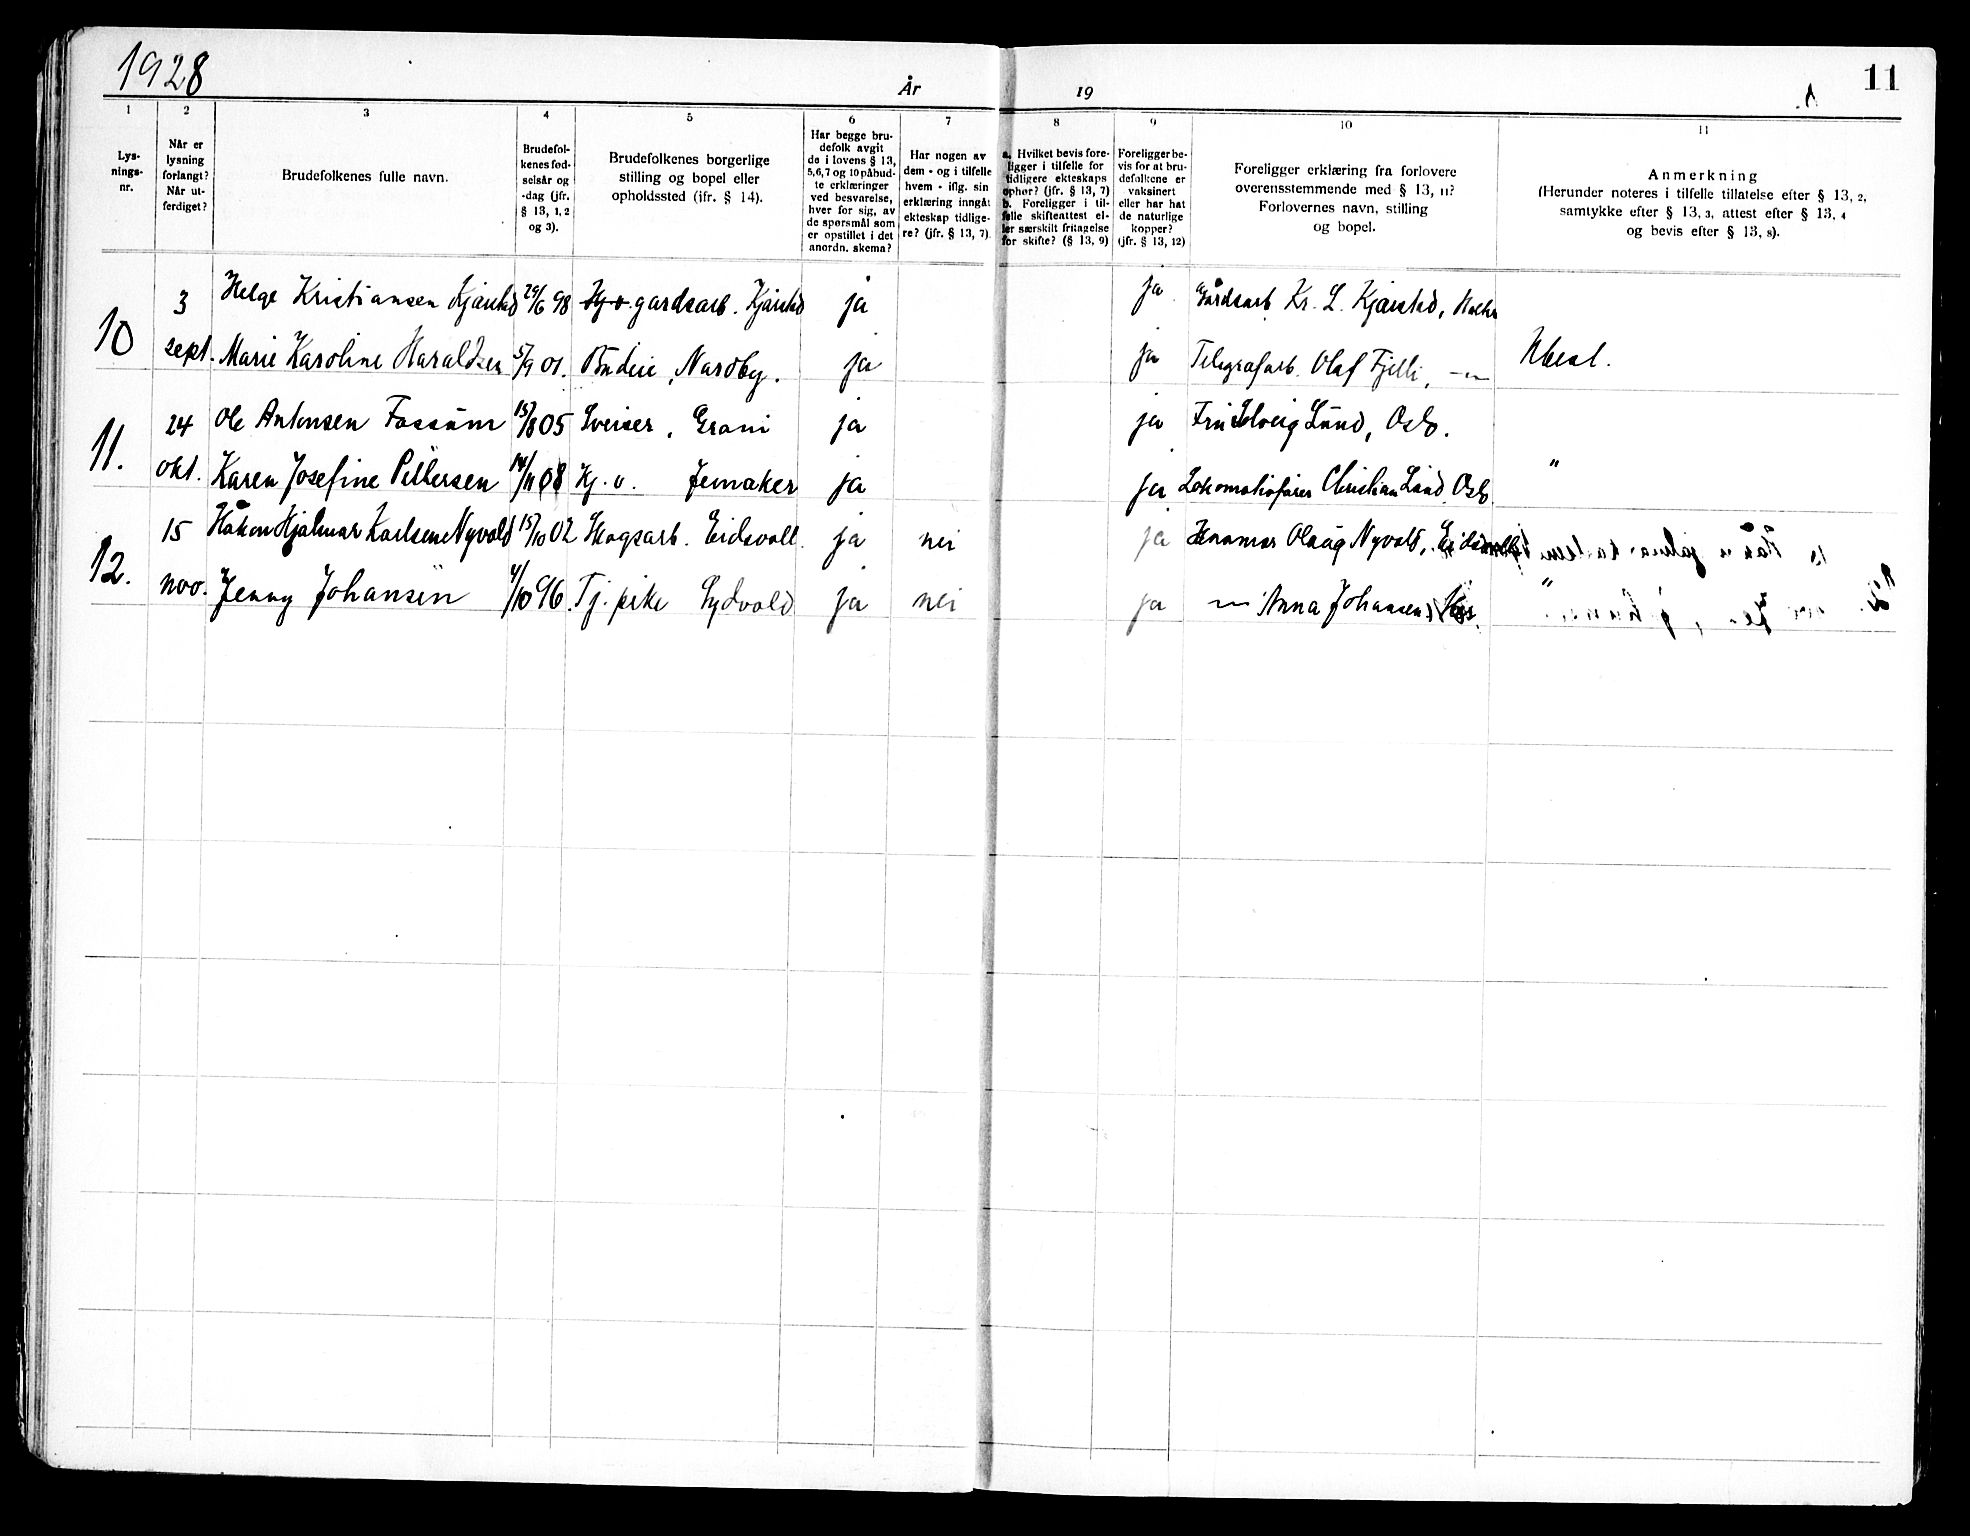 1928
År
19
11
1
2
3
4
5
6
7
8
9
10
11
Lys-
nings-
nr.
Når er
lysning
forlangt?
Når ut-
ferdiget?
Brudefolkenes fulle navn.
Brudefol-
kenes fød-
selsår og
-dag (jfr.
§ 13, 1, 2
og 3).
Brudefolkenes borgerlige
stilling og bopel eller
opholdssted (jfr. § 14).
Har begge bru-
defolk avgit
de i lovens § 13,
5,6,7 og 10 påbud-
te erklæringer
ved besvarelse,
hver for sig, av
de spørsmål som
er opstillet i det
anordn. skema?
Har nogen av
dem - og i tilfelle
hvem - iflg. sin
erklæring inngåt
ekteskap tidlige-
re? (jfr. § 13, 7).
a. Hvilket bevis fore-
ligger i tilfelle for
tidligere ekteskaps
ophør? (jfr. § 13, 7)
b. Foreligger i til-
felle skifteattest el-
ler særskilt fritagelse
for skifte? (§ 13, 9)
Foreligger be-
vis for at bru-
defolkene er
vaksinert
eller har hat
de naturlige
kopper?
(jfr. § 13, 12)
Foreligger erklæring fra forlovere
overensstemmende med § 13, 11?
Forlovernes navn, stilling
og bopel.
Anmerkning
(Herunder noteres i tilfelle tillatelse efter § 13, 2,
samtykke efter § 13, 3, attest efter § 13, 4
og bevis efter § 13, 8).
10 3 Helge Kristiansen Kjærstad 29/6 98 Hj. v. gardsarb. Kjærstad ja ja Gårdsarb Kr. L. Kjærstad,
sept. Marie Karoline Haraldsen 5/9 01. Budeie, Nardby. ja ja Telegrafarb. Olaf Fjelli, —"— Ubesl.
11. 24 Ole Antonsen Fossum 15/8 05 Sveiser, Grani ja ja Fru Solveig Lund, Oslo.
okt. Karen Josefine Pettersen 14/11 08 Hj. v. Jemaker ja ja Lokomotivfører Christian Lund, Oslo "
12. 15 Håkon Hjalmar Karlsen Nyvold 15/10 02 Skogsarb. Eidsvoll. ja nei ja Olaug Nyvold, Eidsvoll
nov. Jenny Johansen 4/10 96. Tj. pike Sydvold ja nei ja —"— Anna Johansen,